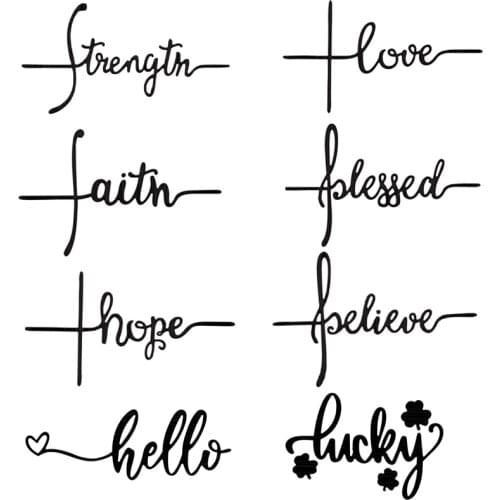 Strength
love
faith
blessed
hope
believe
hello
lucky